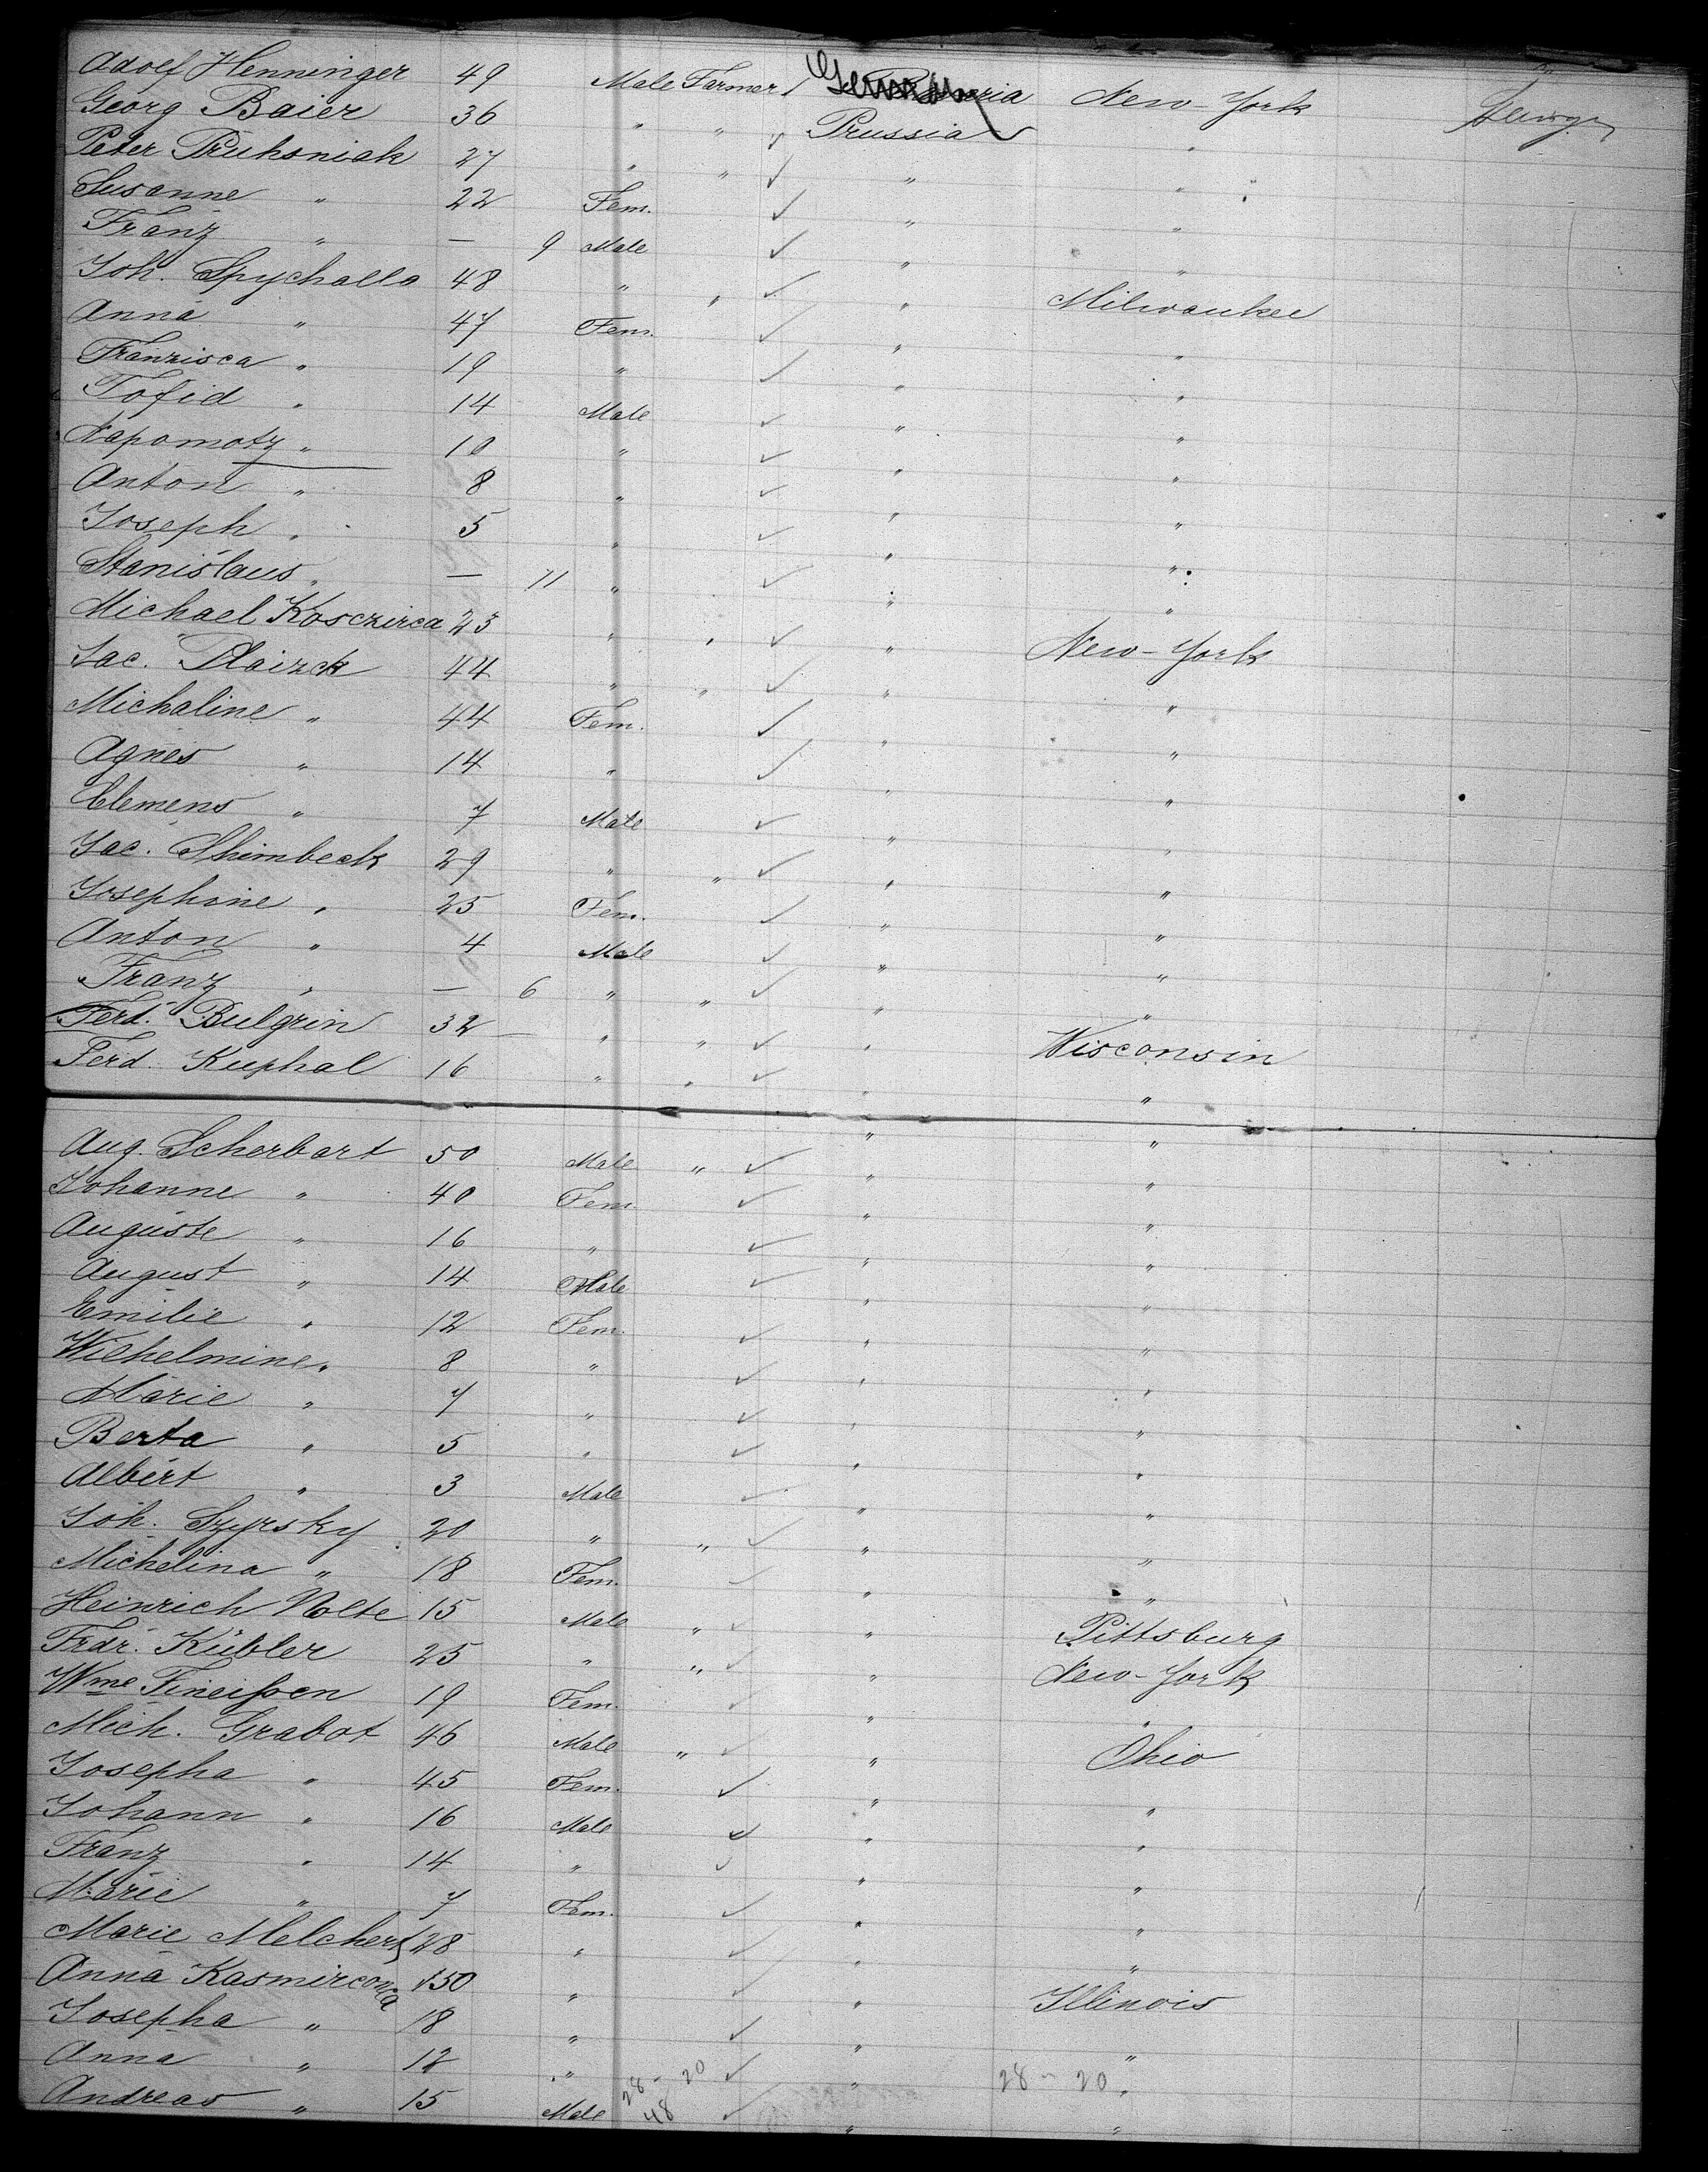 Adolf Henninger 49 Male Farmer Germany New-York Steerage
Georg Baier 36 " " Prussia "
Peter Truhsniak 27 " " " "
Susanne " 22 Fem. " "
Franz " — 9 Male " "
Joh. Spychalla 48 " " " Milwaukee
Anna " 47 Fem. " "
Franzisca " 19 " " "
Tofid " 14 Male " "
Napomotz " 10 " " "
Anton " 8 " " "
Joseph " 5 " " "
Stanislaus " — 11 " " "
Michael Kosczirca 23 " " " New-York
Jac. Plaizck 44 " " " "
Michaline " 44 Fem. " "
Agnes " 14 " " "
Clemens " 7 Male " "
Jac. Shimbeck 29 " " " "
Josephine " 25 Fem. " "
Anton " 4 Male " "
Franz " — 6 " " " "
Ferd. Bulgrin 32 " " " Wisconsin
Ferd. Kuphal 16 " " " "
Aug. Scherbart 50 Male " " "
Johanne " 40 Fem " "
Auguste " 16 " " "
August " 14 Male " "
Emilie " 12 Fem. " "
Wilhelmine " 8 " " "
Marie " 7 " " "
Berta " 5 " " "
Albert " 3 Male " "
Joh. Szyrsky 20 " " " "
Michelina " 18 Fem. " "
Heinrich Nolte 15 Male " " Pittsburg
Frdr. Kübler 25 " " " New-York
Wme Fineissen 19 Fem. " "
Mich. Grabot 46 Male " " Ohio
Josepha " 45 Fem. " "
Johann " 16 Male " "
Franz " 14 " " "
Marie " 7 Fem. " "
Marie Melchert 28 " " "
Anna Kasmirconca 50 " " Illinois
Josepha " 18 " " "
Anna " 12 " 28 - 20 " 28 - 20 "
Andreas " 15 Male 48 " "